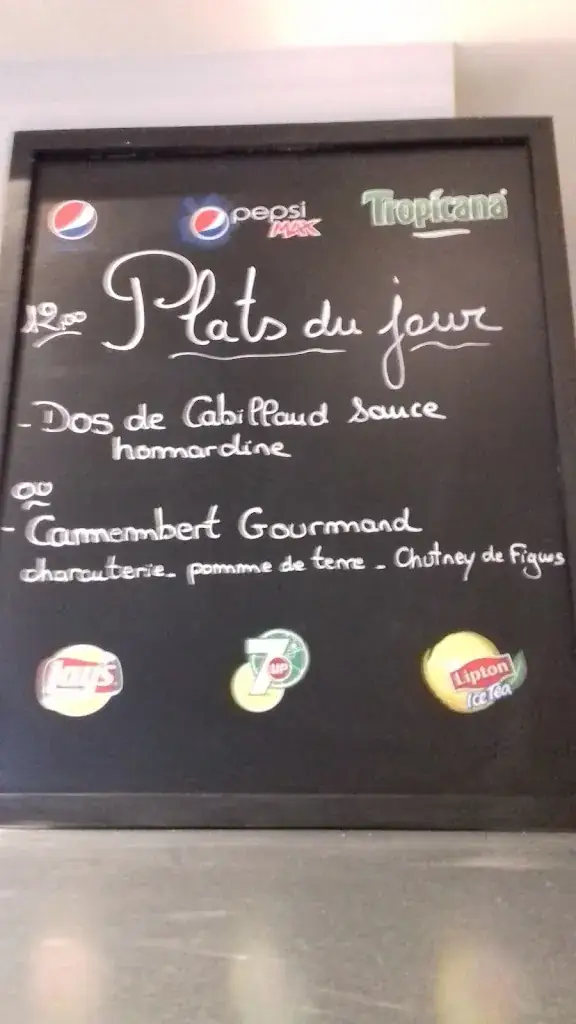 pepsi MAX Tropicana
12,00 Plats du jour
- Dos de Cabillaud sauce
homardine
ou
- Camembert Gourmand
charcuterie - pomme de terre - Chutney de Figues
Lay's 7UP Lipton Ice Tea